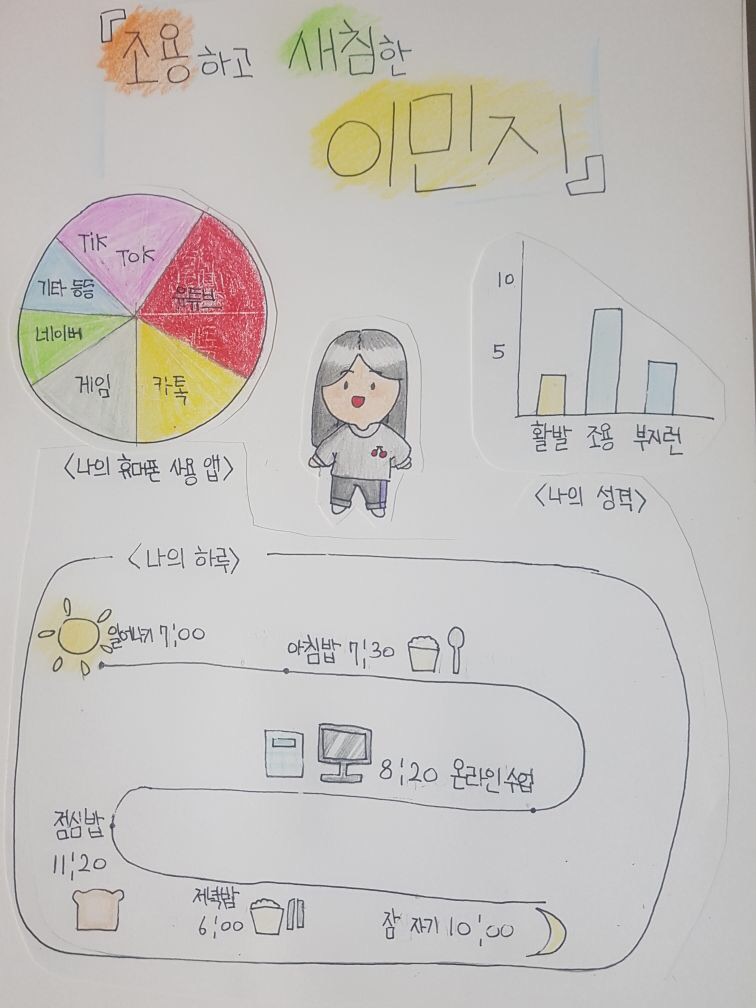 『조용하고 새침한
이민지』
Tik Tok
유튜브
기타 등등
네이버
게임
카톡
<나의 휴대폰 사용 앱>
10
5
활발 조용 부지런
<나의 성격>
<나의 하루>
일어나기 7:00
아침밥 7:30
8:20 온라인 수업
점심밥
11:20
저녁밥
6:00
잠 자기 10:00